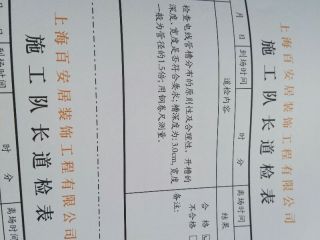 上海百安居装饰工程有限公司
施工队长道检表
月 日 到场时间 时 分 离场时间
道检内容 结果
检查电线管槽分布的原则性及合理性,开槽的
深度、宽度是否符合要求:槽深度为:3.0cm,宽度
一般为管径的1.5倍;用钢卷尺测量.
合 格
不合格
备注:
上海百安居装饰工程有限公司
施工队长道检表
月 日 到场时间 时 分 离场时间